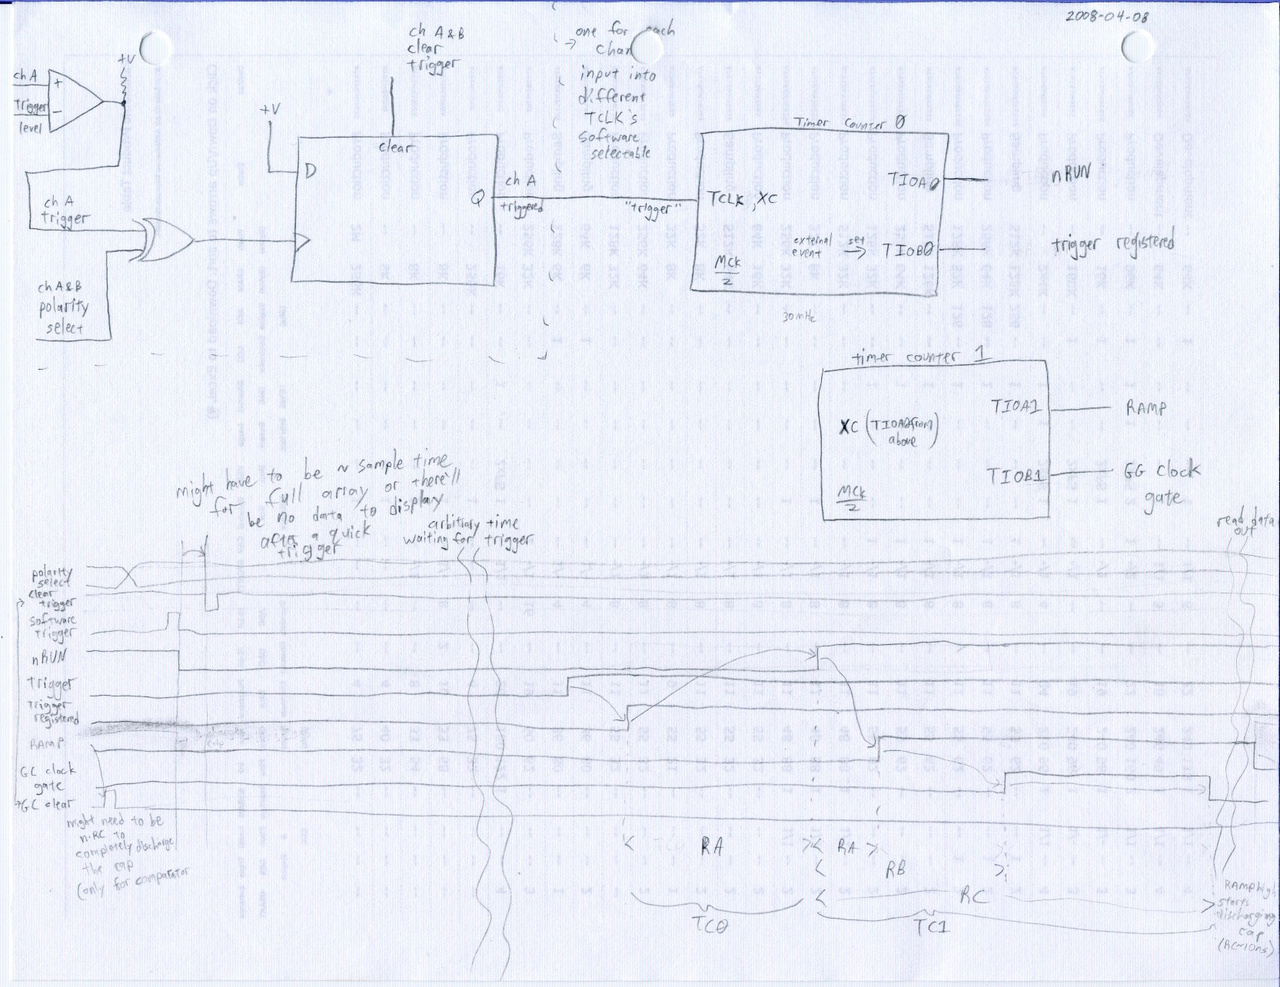 2008-04-08
+V
ch A
+
trigger
-
level
ch A
trigger
ch A&B
polarity
select
+V
ch A&B
clear
trigger
clear
D
Q
ch A
triggered
one for each
chan
input into
different
TCLK's
software
selectable
"trigger"
Timer counter 0
TCLK, XC
TIOA0
nRUN
external
event
set
TIOB0
trigger registered
MCK
2
30 MHz
timer counter 1
XC (TIOA0 from
above)
TIOA1
RAMP
TIOB1
GG clock
gate
MCK
2
might have to be ~ sample time
for full array or there'll
be no data to display
after a quick
trigger
arbitrary time
waiting for trigger
read data
out
polarity
select
clear
trigger
software
trigger
nRUN
Trigger
Trigger
registered
RAMP
GC clock
gate
GC clear
might need to be
n·RC to
completely discharge
the cap
(only for comparator
RA
RA
RB
RC
TC0
TC1
RAMP
starts
discharging
cap